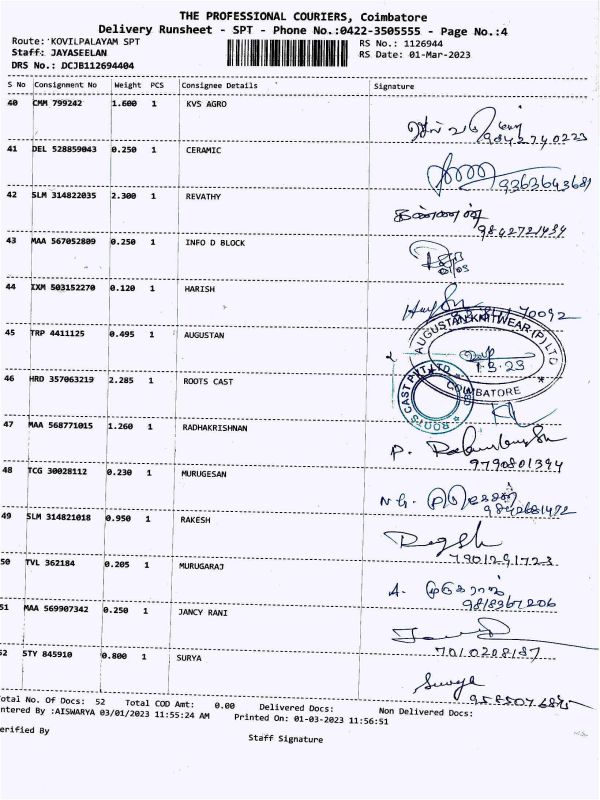 THE PROFESSIONAL COURIERS, Coimbatore
Delivery Runsheet - SPT - Phone No.:0422-3505555 - Page No.:4
Route: KOVILPALAYAM SPT RS No.: 1126944
Staff: JAYASEELAN RS Date: 01-Mar-2023
DRS No.: DCJB112694404
S No Consignment No Weight PCS Consignee Details Signature
40 CMM 799242 1.600 1 KVS AGRO
9842740223
41 DEL 528859043 0.250 1 CERAMIC
9363643681
42 SLM 314822035 2.300 1 REVATHY
கண்ணன்
9842721434
43 MAA 567052809 0.250 1 INFO D BLOCK
44 IXM 503152270 0.120 1 HARISH
70092
45 TRP 4411125 0.495 1 AUGUSTAN
AUGUSTAN KNITWEAR (P) LTD
1.3.23
COIMBATORE
46 HRD 357063219 2.285 1 ROOTS CAST
ROOTS CAST PVT. LTD
47 MAA 568771015 1.260 1 RADHAKRISHNAN
P. Radhakrishnan
9790801394
48 TCG 30028112 0.230 1 MURUGESAN
N.G. முருகேசன்
9842681472
49 SLM 314821018 0.950 1 RAKESH
7901291723
50 TVL 362184 0.205 1 MURUGARAJ
A. முருகராஜ்
9818967206
51 MAA 569907342 0.250 1 JANCY RANI
7010208187
52 STY 845910 0.800 1 SURYA
Surya
Total No. Of Docs: 52 Total COD Amt: 0.00 Delivered Docs: Non Delivered Docs:
ntered By :AISWARYA 03/01/2023 11:55:24 AM Printed On: 01-03-2023 11:56:51
erified By Staff Signature